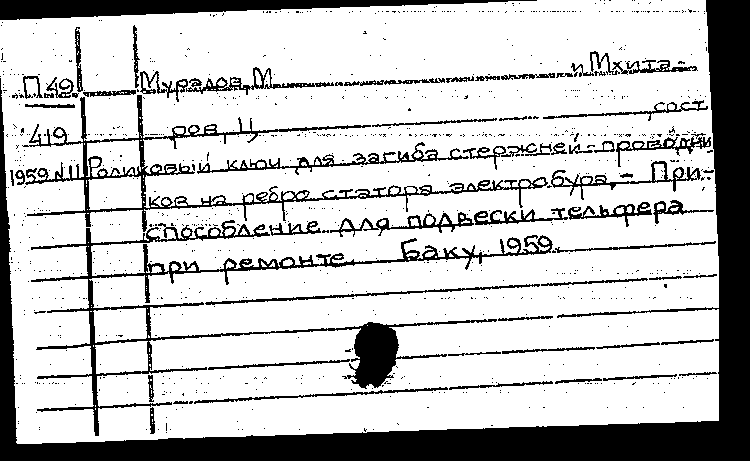 П 49 Мурадов, М и Мхита-
419 ров, Ц, сост
1959 N11 Роликовый ключ для загиба стержней-проводни
ков на ребро статора электробура. - При-
способление для подвески тельфера
при ремонте. Баку, 1959.